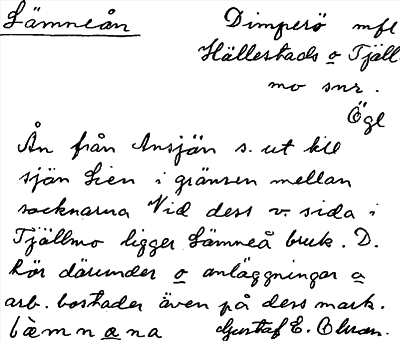 Lämneån
Dimperö mfl
Hällestads o Tjäll-
mo snr.
Ögl
Ån från Ansjön s. ut till
sjön Lien i gränsen mellan
socknarna Vid dess v. sida i
Tjällmo ligger Lämneå bruk. D.
hör därunder o anläggningar a
arb. bostader även på dess mark.
lä̀mnana Gustaf E. Olsson.